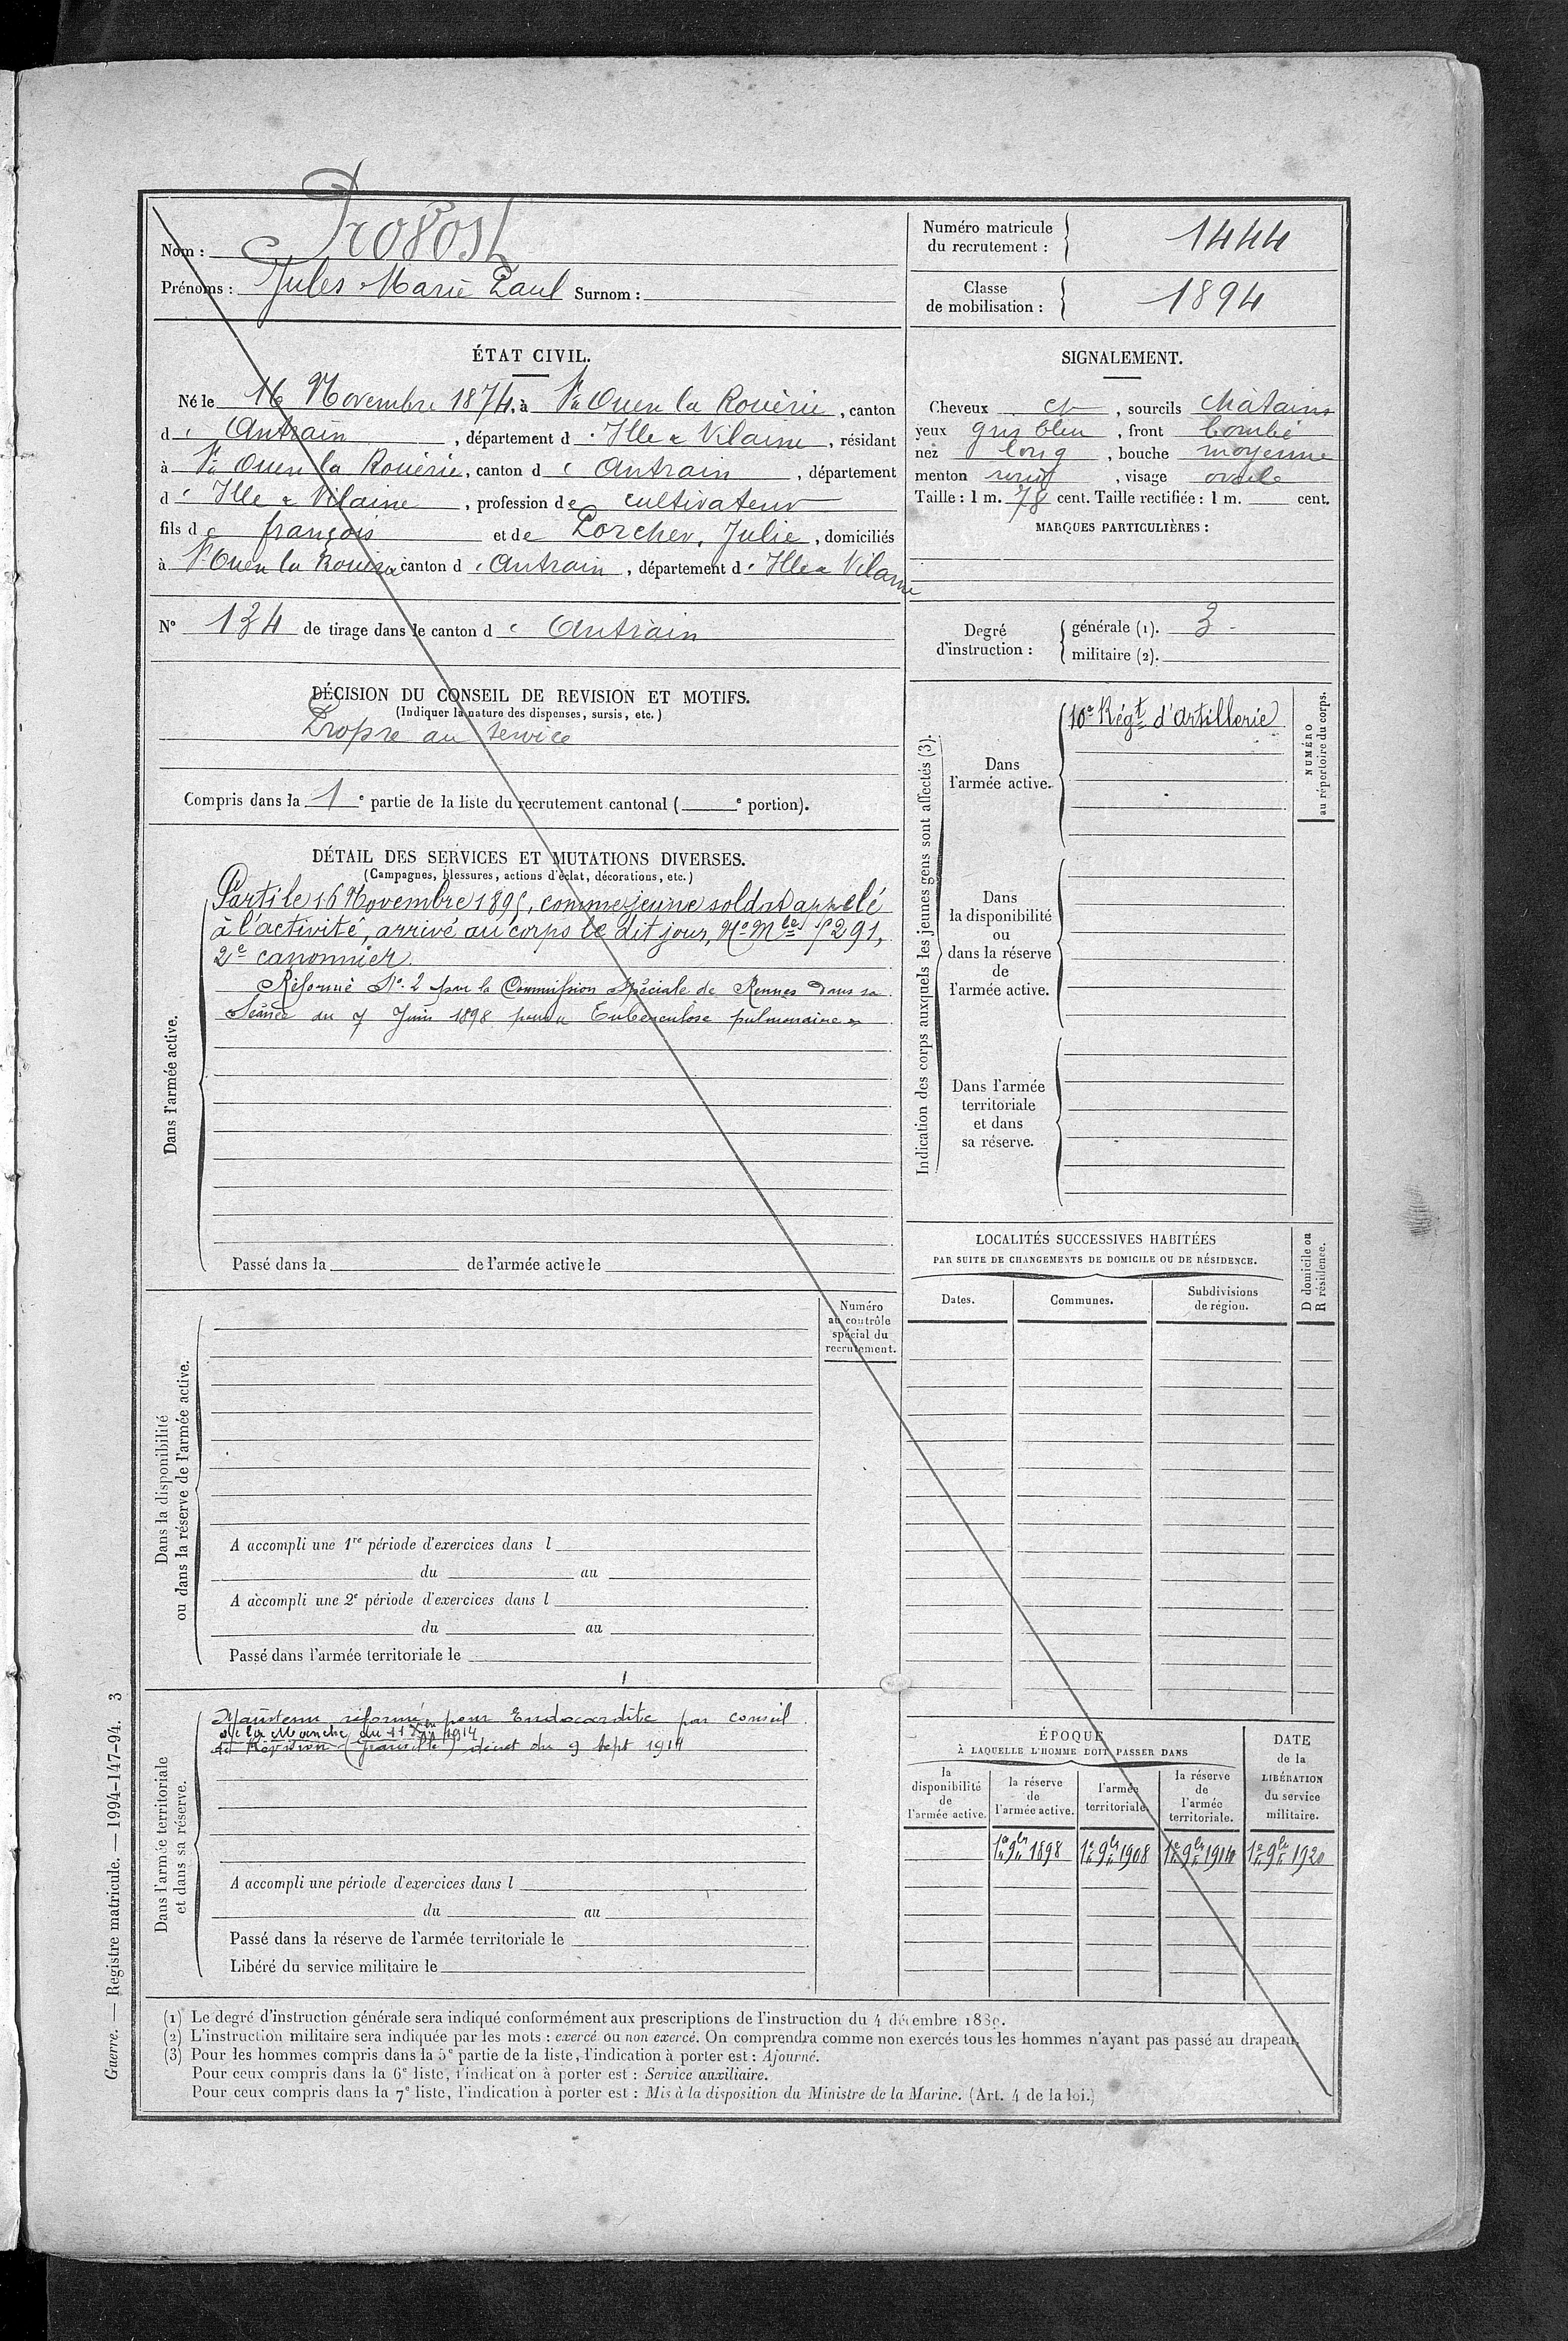 Nom : Provost
Prénoms : Jules Marie Paul Surnom :
Numéro matricule du recrutement : 1444
Classe de mobilisation : 1894
ÉTAT CIVIL.
Né le 16 Novembre 1874, à St Ouen la Rouërie, canton
d' Antrain, département d' Ille & Vilaine, résidant
à St Ouen la Rouërie, canton d' Antrain, département
d' Ille & Vilaine, profession de cultivateur
fils de françois et de Porcher, Julie, domiciliés
à St Ouen la Rouërie canton d' Antrain, département d' Ille & Vilaine
N° 134 de tirage dans le canton d' Antrain
SIGNALEMENT.
Cheveux ch, sourcils châtains
yeux gris bleu, front bombé
nez long, bouche moyenne
menton rond, visage ovale
Taille : 1 m. 78 cent. Taille rectifiée : 1 m. cent.
MARQUES PARTICULIÈRES :
Degré d'instruction :
générale (1). 3.
militaire (2).
DÉCISION DU CONSEIL DE REVISION ET MOTIFS.
(Indiquer la nature des dispenses, sursis, etc.)
Propre au service
Compris dans la 1e partie de la liste du recrutement cantonal ( e portion).
DÉTAIL DES SERVICES ET MUTATIONS DIVERSES.
(Campagnes, blessures, actions d'éclat, décorations, etc.)
Dans l'armée active.
Parti le 16 Novembre 1895, comme jeune soldat appelé
à l'activité, arrivé au corps le dit jour, No Mle 5291,
2e canonnier
Réformé No 2 par la Commission Spéciale de Rennes dans sa
Séance du 7 Juin 1898 pour Tuberculose pulmonaire
Passé dans la de l'armée active le
Indication des corps auxquels les jeunes gens sont affectés (3).
Dans l'armée active.
10e Régt d'Artillerie
NUMÉRO au répertoire du corps.
Dans
la disponibilité
ou
dans la réserve
de
l'armée active.
Dans l'armée
territoriale
et dans
sa réserve.
LOCALITÉS SUCCESSIVES HABITÉES
PAR SUITE DE CHANGEMENTS DE DOMICILE OU DE RÉSIDENCE.
Dates. Communes. Subdivisions de région.
D domicile ou R résidence.
Dans la disponibilité
ou dans la réserve de l'armée active.
Numéro
au contrôle
spécial du
recrutement.
A accompli une 1re période d'exercices dans l
du au
A accompli une 2e période d'exercices dans l
du au
Passé dans l'armée territoriale le
Dans l'armée territoriale
et dans sa réserve.
Maintenu réformé pour Endocardite par conseil
de la Manche du 11 Xbre 1914
de Révision décret du 9 Sept 1914
A accompli une période d'exercices dans l
du au
Passé dans la réserve de l'armée territoriale le
Libéré du service militaire le
ÉPOQUE
À LAQUELLE L'HOMME DOIT PASSER DANS
la disponibilité de l'armée active.
la réserve de l'armée active.
l'armée territoriale.
la réserve de l'armée territoriale.
DATE de la LIBÉRATION du service militaire.
1er 9bre 1898 1er 9bre 1908 1er 9bre 1914 1er 9bre 1920
(1) Le degré d'instruction générale sera indiqué conformément aux prescriptions de l'instruction du 4 décembre 1889.
(2) L'instruction militaire sera indiquée par les mots : exercé ou non exercé. On comprendra comme non exercés tous les hommes n'ayant pas passé au drapeau.
(3) Pour les hommes compris dans la 5e partie de la liste, l'indication à porter est : Ajourné.
Pour ceux compris dans la 6e liste, l'indication à porter est : Service auxiliaire.
Pour ceux compris dans la 7e liste, l'indication à porter est : Mis à la disposition du Ministre de la Marine. (Art. 4 de la loi.)
Guerre. — Registre matricule. — 1994-147-94. 3